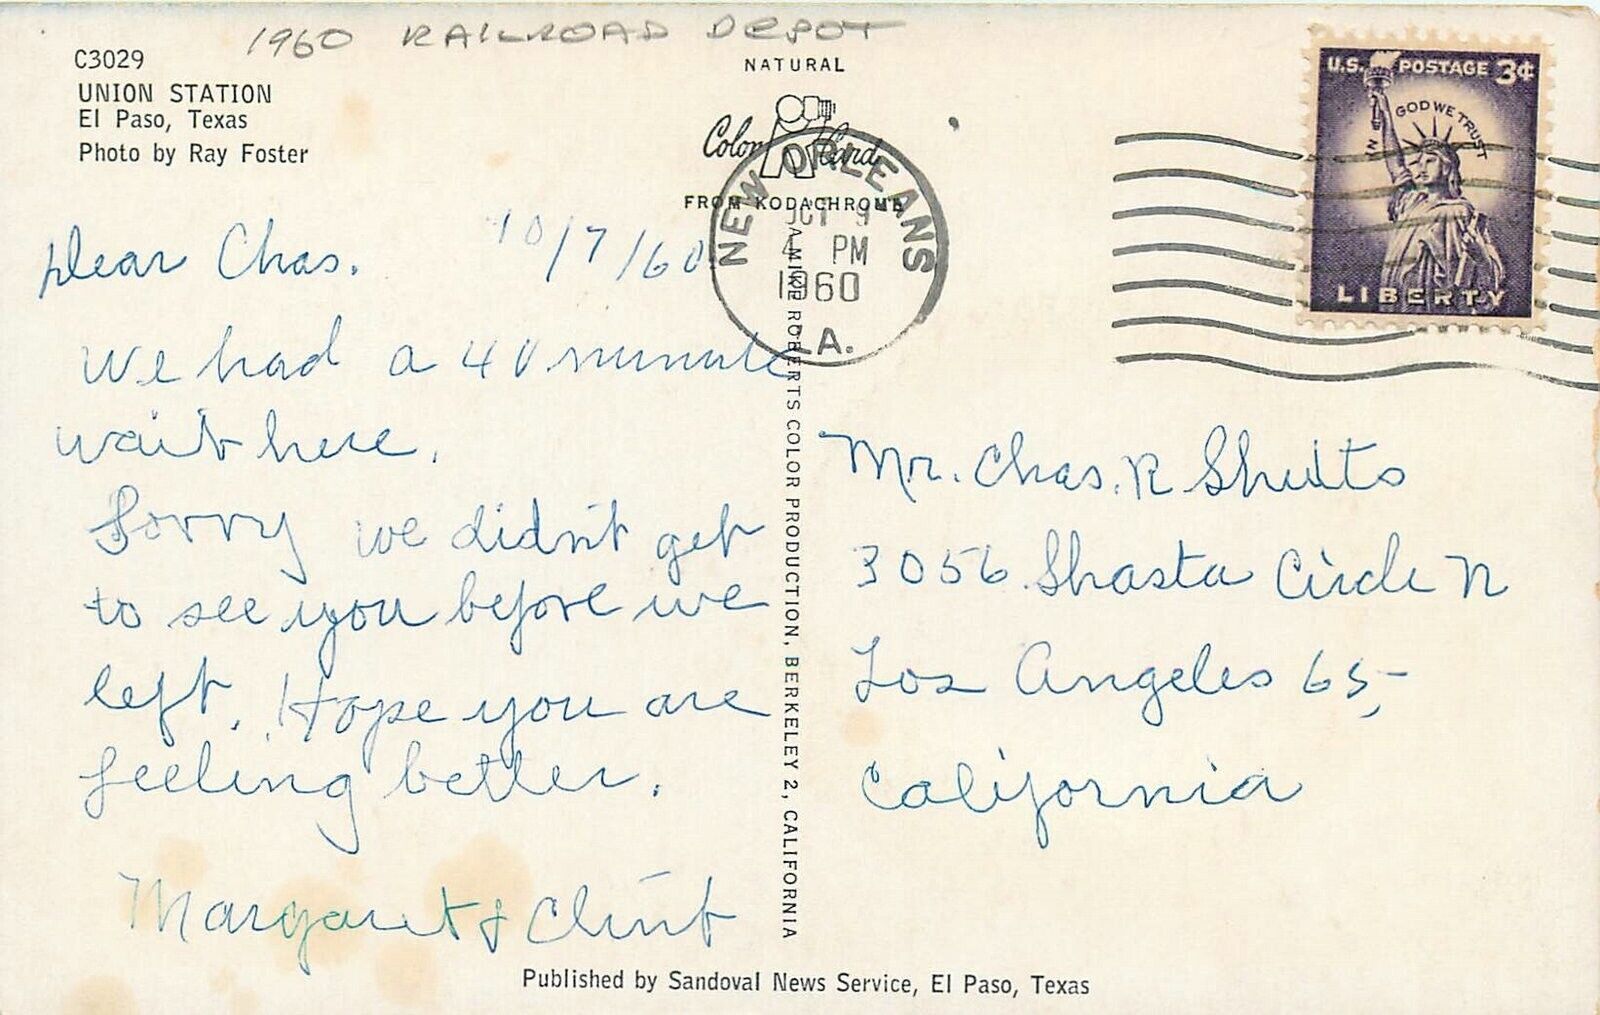 1960 RAILROAD DEPOT
C3029
UNION STATION
El Paso, Texas
Photo by Ray Foster
NATURAL
Color Card
FROM KODACHROME
U.S. POSTAGE 3¢
IN GOD WE TRUST
LIBERTY
NEW ORLEANS
OCT 9
4 PM
1960
LA.
Dear Chas. 10/7/60
We had a 40 minute
wait here.
Sorry we didn't get
to see you before we
left. Hope you are
feeling better.
Margaret & Clint
A MIKE ROBERTS COLOR PRODUCTION, BERKELEY 2, CALIFORNIA
Mr. Chas. R Shults
3056 Shasta Circle N
Los Angeles 65,
California
Published by Sandoval News Service, El Paso, Texas